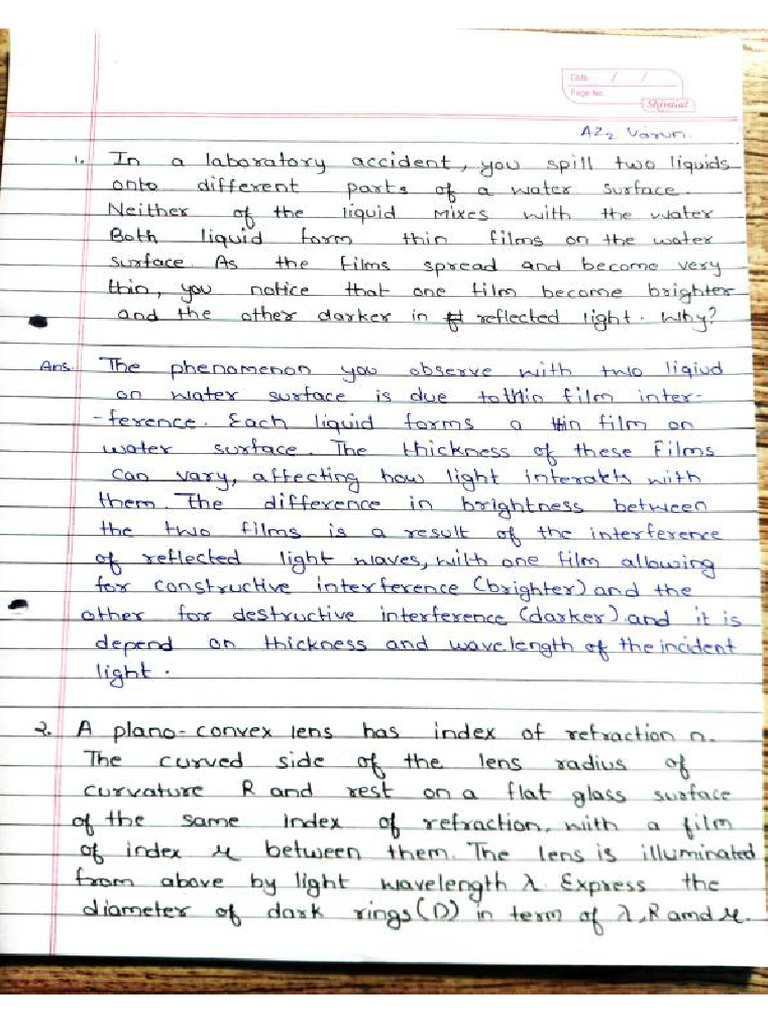 Date / /
Page No.
Shivalal
AZ2 Varun.
1. In a laboratory accident, you spill two liquids
onto different parts of a water surface.
Neither of the liquid mixes with the water
Both liquid form thin films on the water
surface. As the films spread and become very
thin, you notice that one film become brighter
and the other darker in reflected light. Why?
Ans. The phenomenon you observe with two liqiud
on water surface is due to thin film inter-
-ference. Each liquid forms a thin film on
water surface. The thickness of these films
can vary, affecting how light interakts with
them. The difference in brightness between
the two films is a result of the interference
of reflected light waves, with one film allowing
for constructive interference (brighter) and the
other for destructive interference (darker) and it is
depend on thickness and wavelength of the incident
light.
2. A plano-convex lens has index of refraction n.
The curved side of the lens radius of
curvature R and rest on a flat glass surface
of the same index of refraction, with a film
of index μ between them. The lens is illuminated
from above by light wavelength λ. Express the
diameter of dark rings (D) in term of λ, R amd μ.